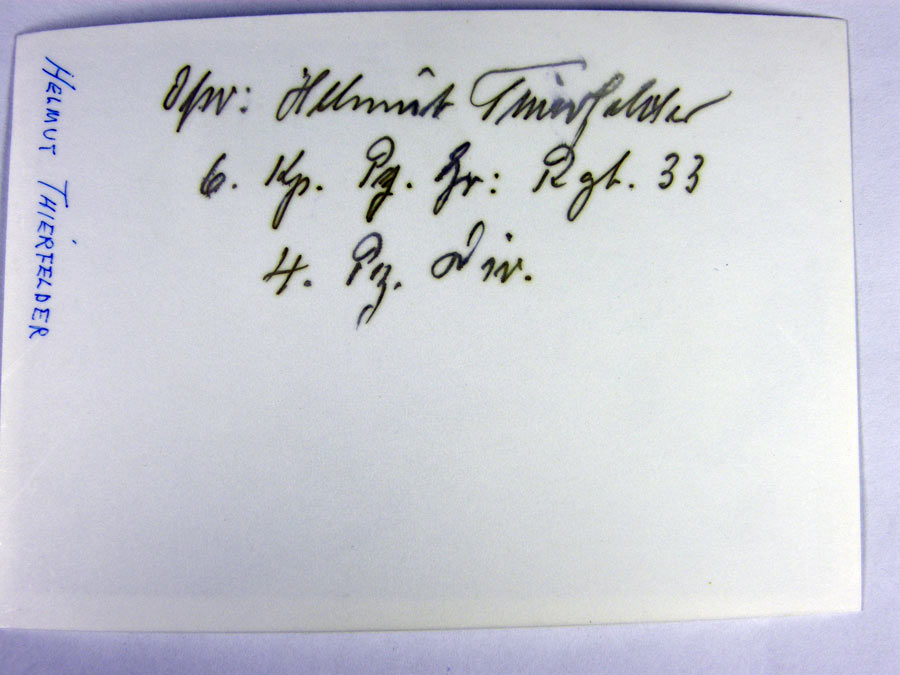 Ofw: Helmut Thierfelder
6. Kp. Pz. Gr: Rgt. 33
4. Pz. Div.
HELMUT THIERFELDER